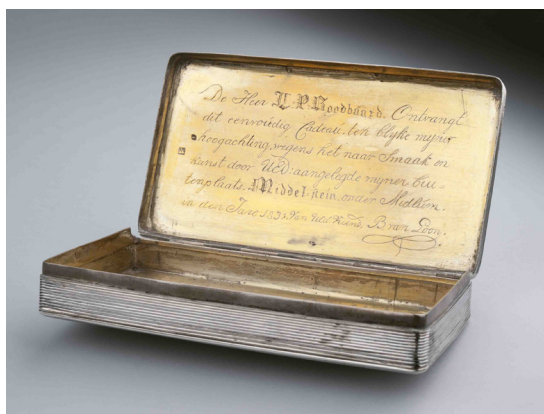 De Heer L. P. Roodbaard. Ontvangt
dit eenvoudig Cadeau, ten blijke mijner
hoogachting, wegens het naar Smaak en
kunst door UEd: aangelegde mijner bui-
tenplaats, Middelstein, onder Midlum.
in den Jare 183 Van UEd. Vriend. B van Loon.